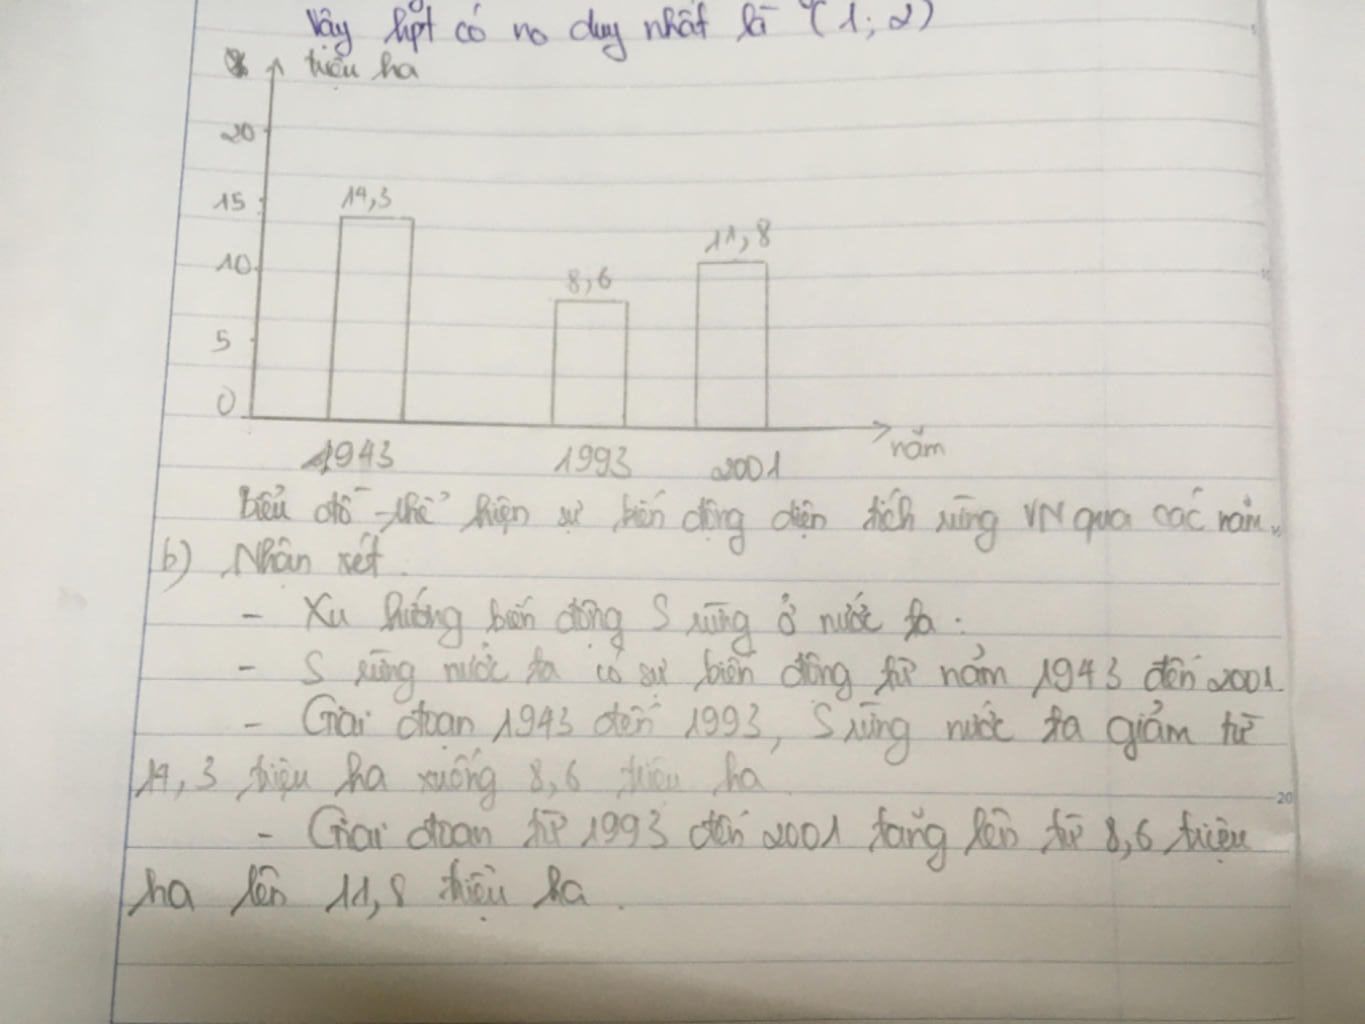 Vậy hpt có no duy nhất là (1; 2)
triệu ha
20
15
14,3
11,8
10
8,6
5
0
năm
1943
1993
2001
Biểu đồ thể hiện sự biến động diện tích rừng VN qua các năm.
b) Nhận xét.
- Xu hướng biến động S rừng ở nước ta:
- S rừng nước ta có sự biến động từ năm 1943 đến 2001
- Giai đoạn 1943 đến 1993, S rừng nước ta giảm từ
14,3 triệu ha xuống 8,6 triệu ha
20
- Giai đoạn từ 1993 đến 2001 tăng lên từ 8,6 triệu
ha lên 11,8 triệu ha.